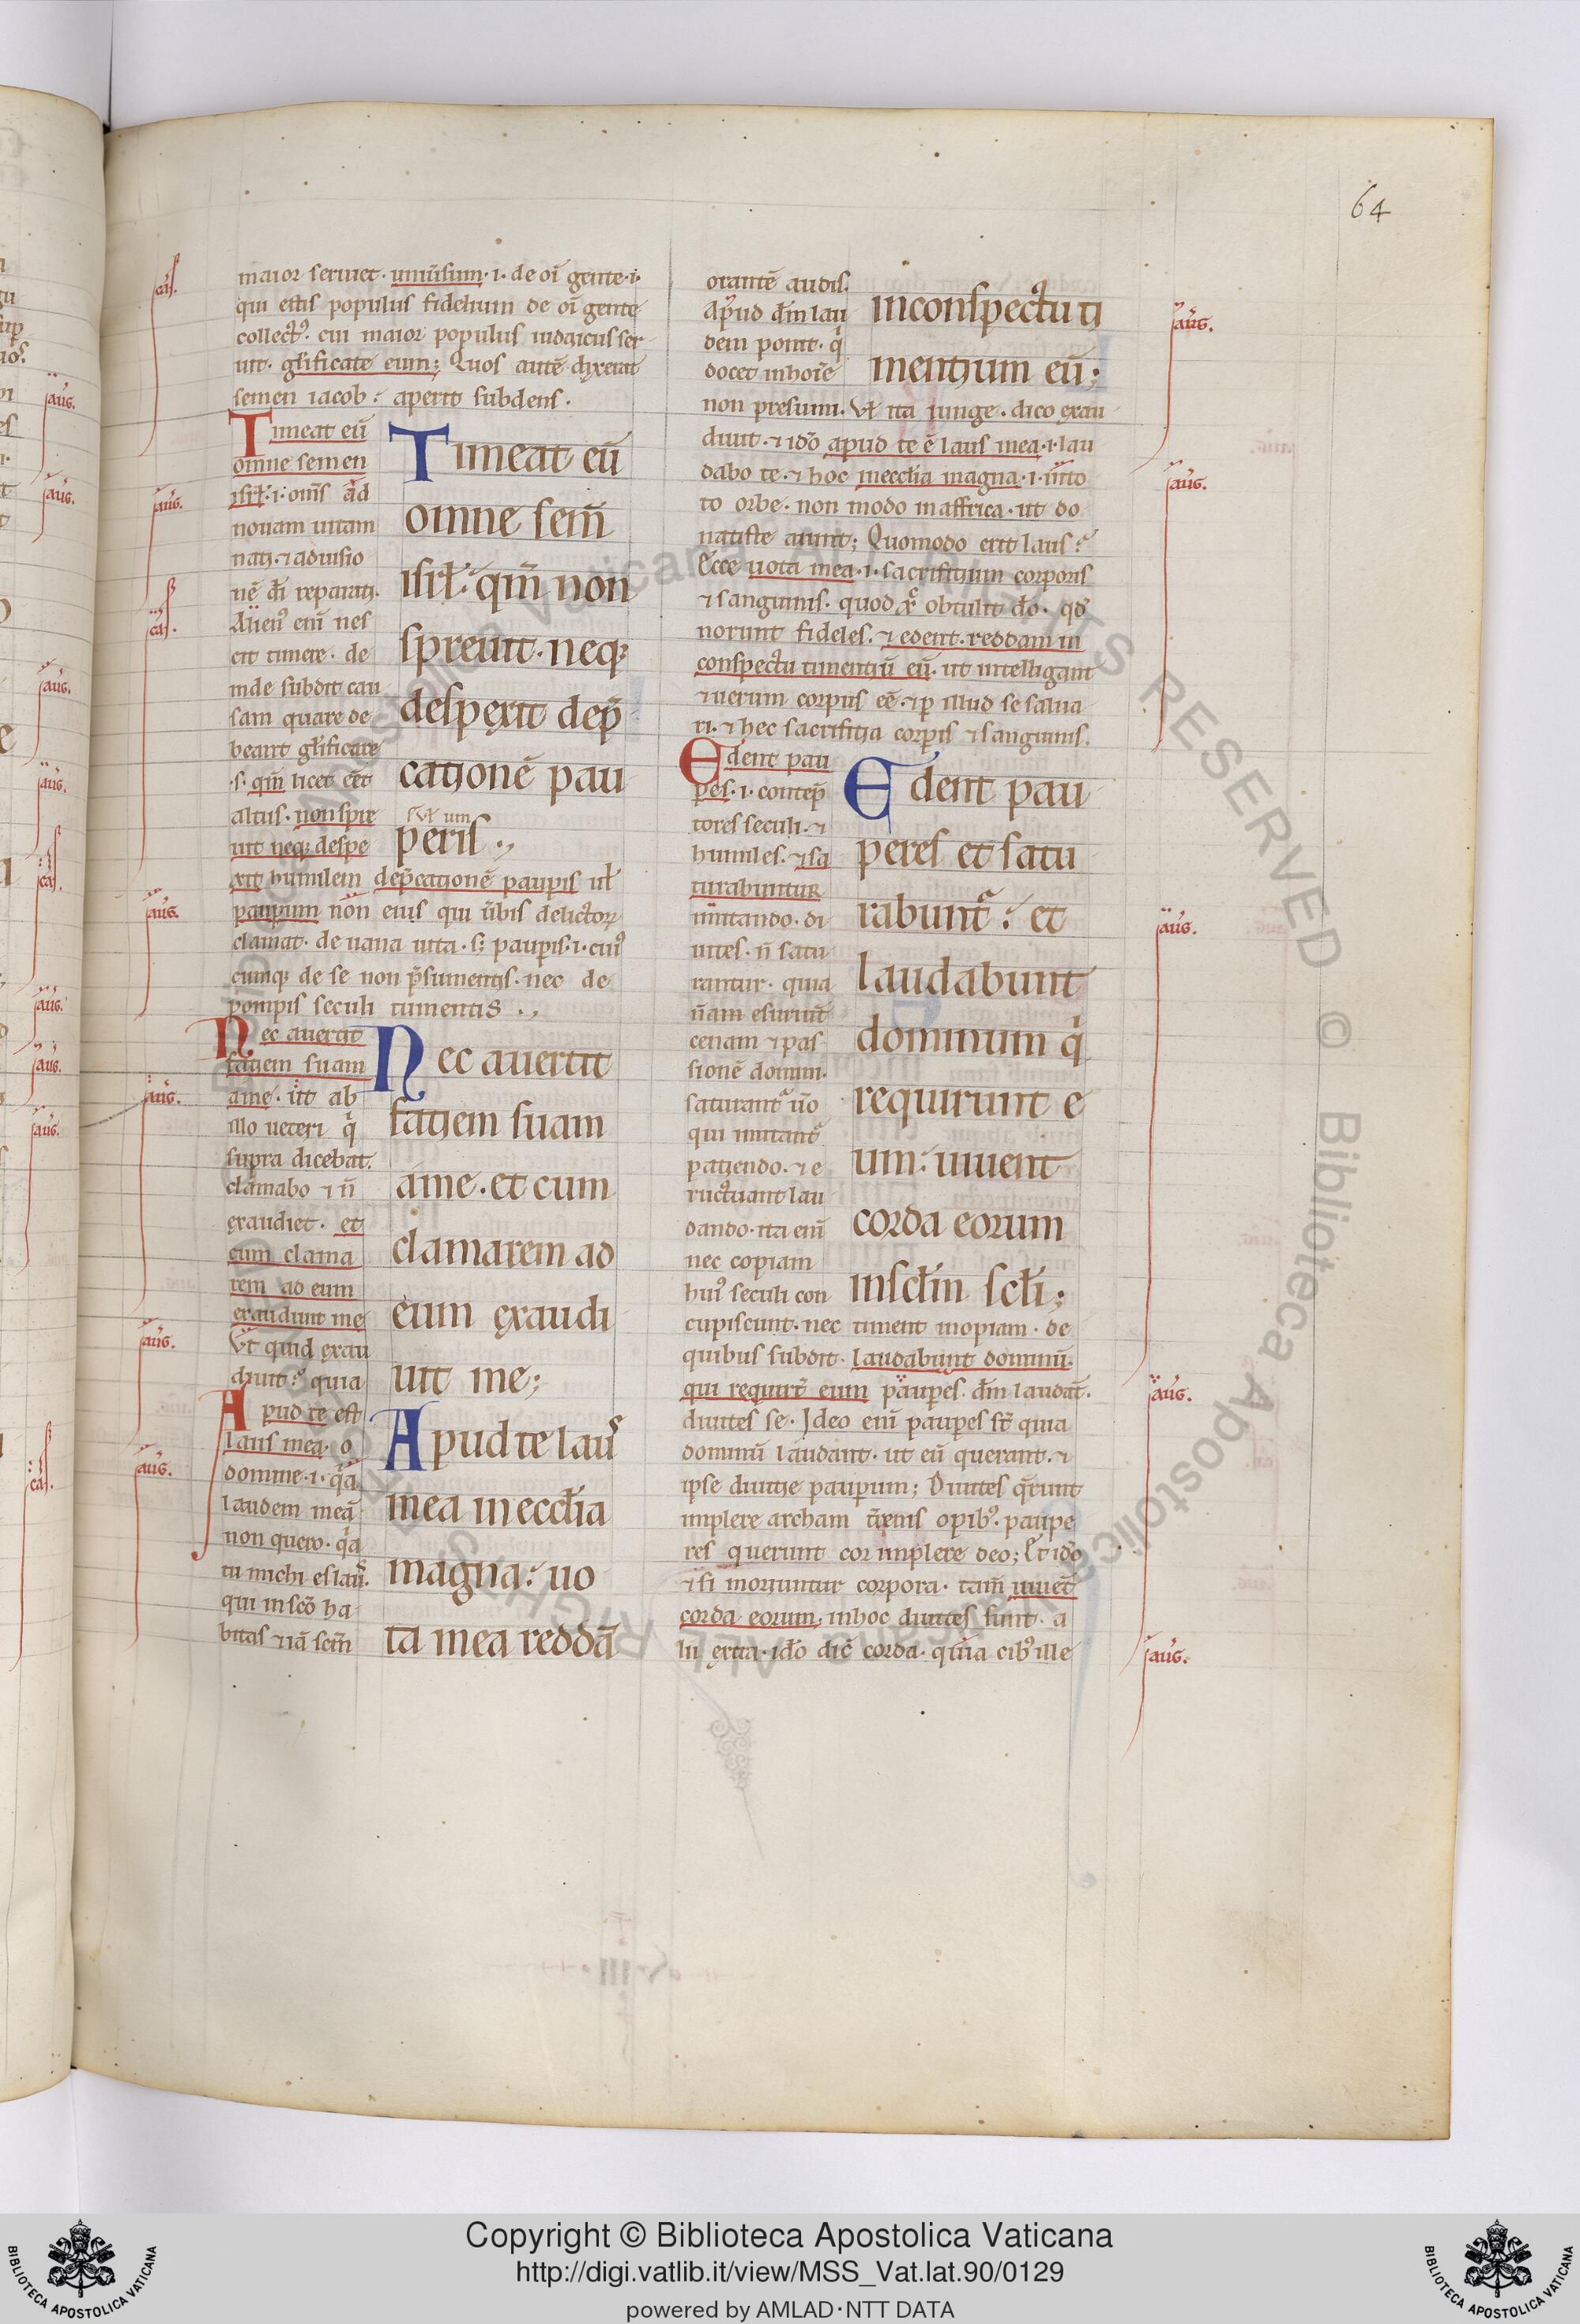 64
maior seruiet. uniũsum. i. de oĩ gente. i.
qui estis populus fidelium de oĩ gente
collectꝰ. cui maior populus iudaicus ser
uit. gl̃ificate eum; Quos autẽ dixerat
semen iacob: aperit subdens.
Timeat eũ
omne semen
isr̃l. i. om̃s ad
nouam uitam
nati. ⁊ ad uisio
nẽ dī reparati.
cit timere. de
inde subdit cau
sam quare de
beant gl̃ificare
.s. qm̃ licet eēt
altus. non spre
uit neqꝫ despe
xit humilem dep̃cationẽ paupis ul̃
paupum non eius qui ũbis delictoꝝ
clamat. de uana uita. sꝫ paupis. i. cuiꝰ
cumqꝫ de se non p̃sumentis. nec de
pompis seculi tumentis.
Timeat eũ
omne sem̃
isr̃l: qm̃ non
spreuit. neqꝫ
despexit dep̃
cationẽ pau
ul̃ um
peris.
Nec auertit
faciem suam
a me. ut ab
illo ueteri q̇
supra dicebat.
clamabo ⁊ ñ
exaudiet. et
cum clama
rem ad eum
exaudiuit me
Vt quid exau
diuit? quia
Nec auertit
faciem suam
a me. et cum
clamarem ad
eum exaudi
uit me;
Apud te est
laus mea. o
domine. i. q̃a
laudem meã
non quero. q̃a
tu michi es lauˢ.
qui in scõ ha
bitas ⁊ iã scm̃
Apud te lauˢ
mea in eccl̃ia
magna: uo
ta mea reddã
orantẽ audis.
Apud dm̃ lau
dem ponit. q̇
docet in hoĩe
non presumi. Vl̃ ita iunge. dico exau
diuit. ⁊ idõ apud te ẽ laus mea. i. lau
dabo te. ⁊ hoc in eccl̃ia magna. i. in to
to orbe. non modo in affrica. ut do
natiste aiunt; Quomodo erit laus?
Ecce uota mea. i. sacrifitium corporis
⁊ sanguinis. quod xp̃c obtulit dõ. qd̃
norunt fideles. ⁊ edent. reddam in
conspectu timentiũ eũ. ut intelligant
⁊ uerum corpus eẽ. ⁊ ꝑ illud se salua
ri. ⁊ hec sacrifitia corpis ⁊ sanguinis.
in conspectu ti
mentium eũ;
Edent pau
pes. i. contep̃
tores seculi. ⁊
humiles. ⁊ sa
turabuntur
imitando. di
uites. ñ satu
rantur. quia
ñ am esuriũt
cenam ⁊ pas
sionẽ domini.
saturant᷑ ũo
qui imitant᷑
patiendo. ⁊ e
ructuant lau
dando. ita eni
nec copiam
huiꝰ seculi con
cupiscunt. nec timent inopiam. de
quibus subdit. laudabunt dominũ.
qui requirt̃ eum pauperes. dm̃ laudãt.
diuites se. Ideo enĩ pauperes st̃ quia
dominũ laudant. ut eũ querant. ⁊
ipse diuitie pauperum; Diuites q̃runt
implere archam t̃renis opibꝰ. paupe
res querunt cor implere deo; Et idõ
⁊ si moriuntur corpora. tam̃ uiuẽt
corda eorum; in hoc diuites sunt. a
lii extra. idõ dic̃ corda. quia cibꝰ ille
Edent pau
peres et satu
rabunt᷑: et
laudabunt
dominum q̇
requirunt e
um: uiuent
corda eorum
in scl̃m scl̃i;
caſ.
aug.
caſ.
aug.
aug.
aug.
aug.
aug.
aug.
aug.
aug.
aug.
Copyright © Biblioteca Apostolica Vaticana
http://digi.vatlib.it/view/MSS_Vat.lat.90/0129
powered by AMLAD·NTT DATA
BIBLIOTECA APOSTOLICA VATICANA
BIBLIOTECA APOSTOLICA VATICANA